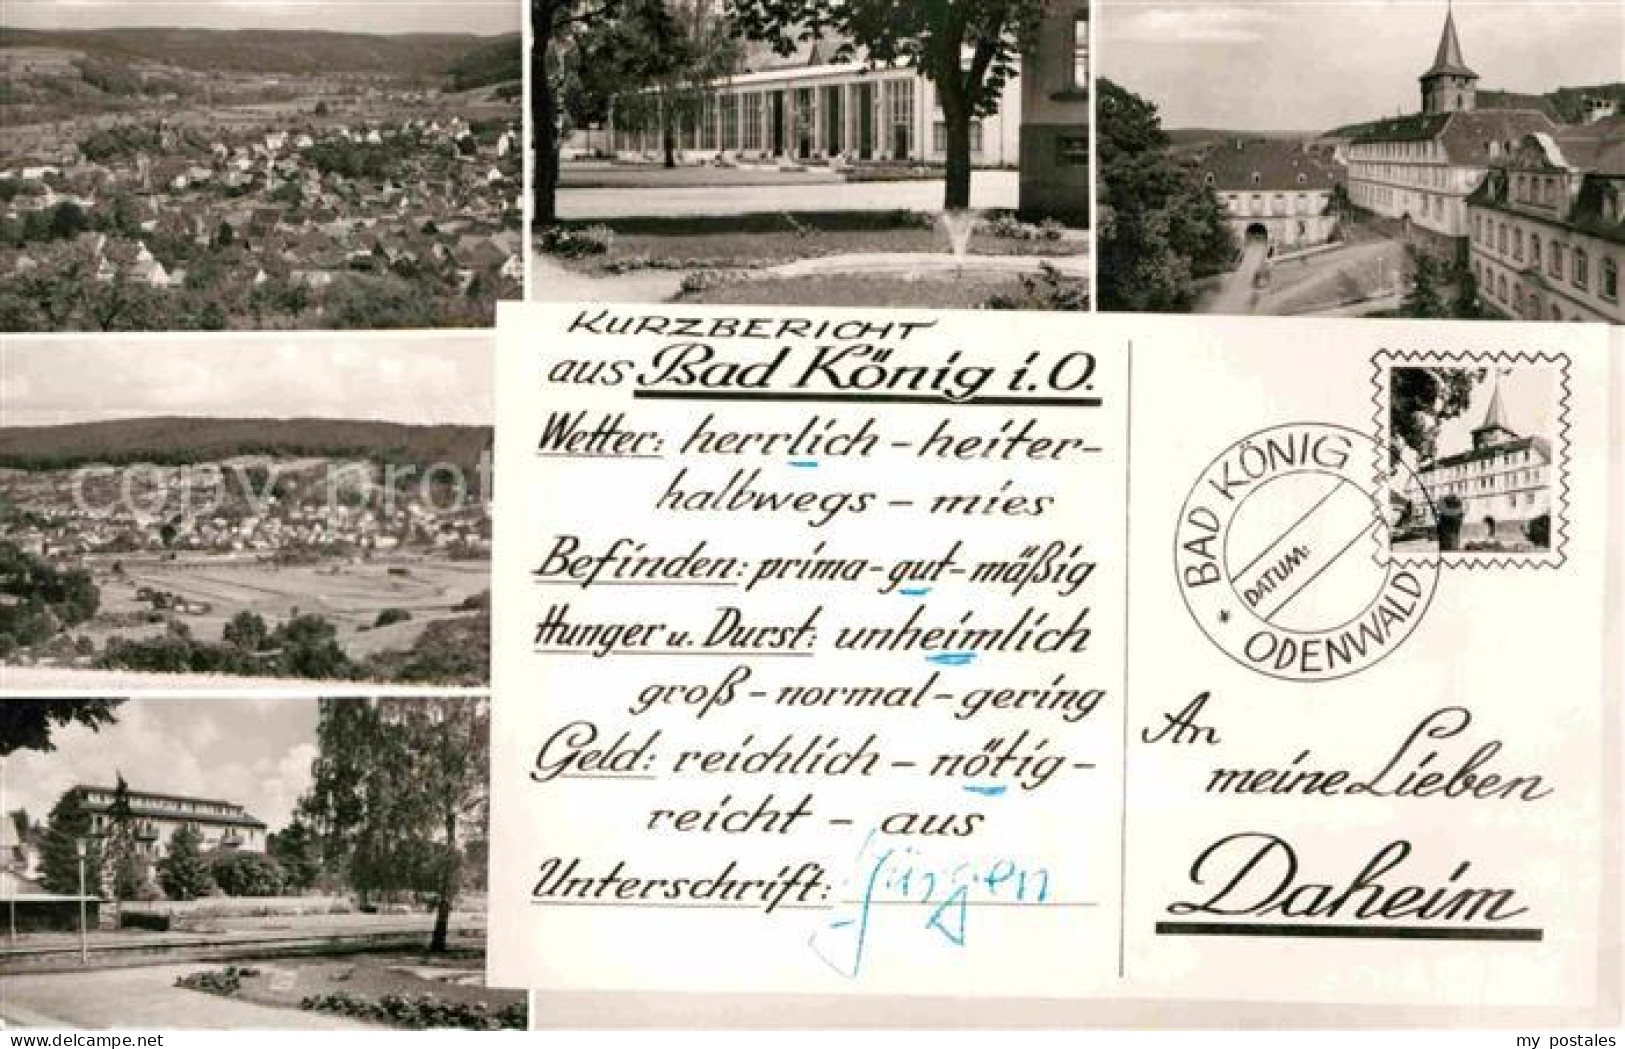 KURZBERICHT
aus Bad König i.O.
Wetter: herrlich – heiter –
halbwegs – mies
Befinden: prima – gut – mäßig
Hunger u. Durst: unheimlich
groß – normal – gering
Geld: reichlich – nötig –
reicht – aus
Unterschrift: Jürgen
BAD KÖNIG
DATUM:
* ODENWALD
An
meine Lieben
Daheim
copy prot
my postales